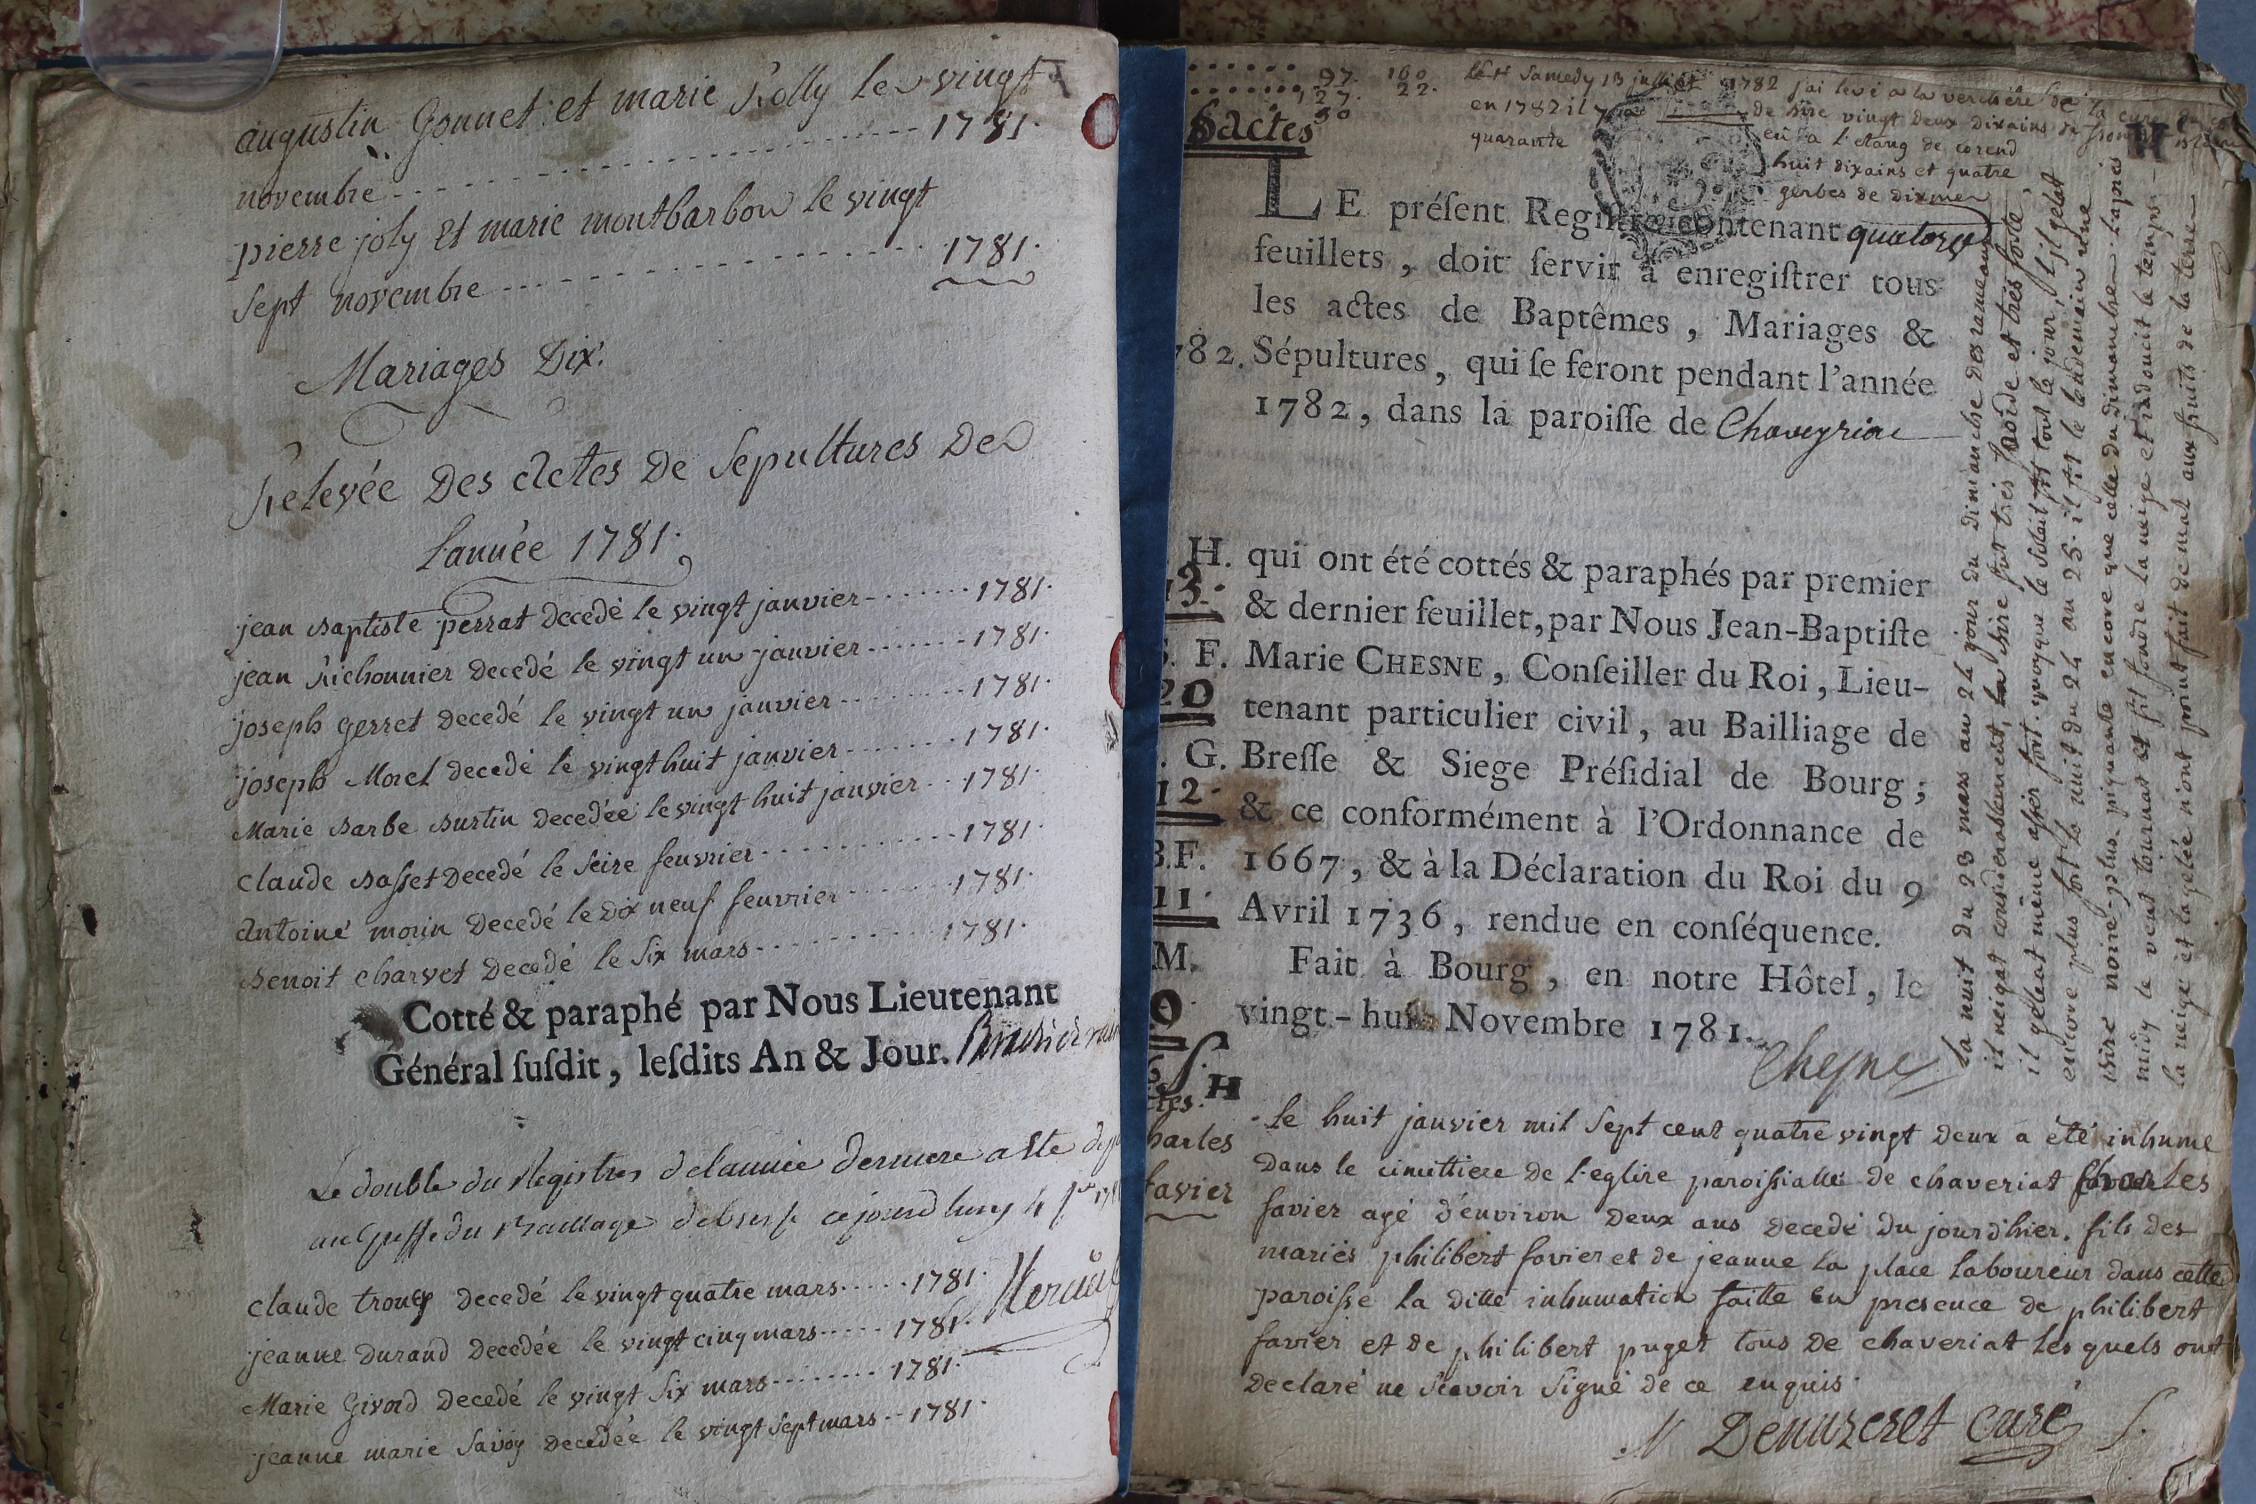 augustin Gonnet et marie Rolly le vingt
novembre - - - - - - 1781.
pierre joly Et marie montbarbon le vingt
sept novembre - - - - - - 1781.
Mariages Dix.
Relevée Des Actes De Sepultures De
Lannée 1781.
jean Baptiste perrat Decedé le vingt janvier - - - 1781.
jean Richonnier Decedé le vingt un janvier - - - 1781.
joseph gerret Decedé le vingt un janvier - - - 1781.
joseph Morel Decedé le vingt huit janvier - - - 1781.
Marie Barbe Burtin Decedée le vingt huit janvier - - 1781.
Claude Basset Decedé le seire feuvrier - - - 1781.
Antoine morin Decedé le Dix neuf feuvrier - - - 1781.
Benoit Charvet Decedé le six mars - - - 1781.
Cotté & paraphé par Nous Lieutenant
Général ſuſdit, leſdits An & Jour.
Le double du Registres de lannée derniere a ete
au Greffe du Bailliage de Bresse ce jourdhuy 4
Claude trouy Decedé le vingt quatre mars - - - 1781.
jeanne Durand Decedée le vingt cinq mars - - - 1781.
Marie Givord Decedé le vingt six mars - - - 1781.
jeanne marie Savoy Decedée le vingt sept mars - - 1781.
97. 160
127. 22.
30
actes
le Samedy 13 juillet 1782 j'ai levé a la verchère de la cure
en 1782 il y a
quarante
de bire vingt deux dixains de
en a l'etang de corend
huit dixains et quatre
gerbes de dixme
H
LE préſent Regiſtre contenant quatorze
feuillets, doit ſervir à enregiſtrer tous
les actes de Baptêmes, Mariages &
782. Sépultures, qui ſe feront pendant l'année
1782, dans la paroiſſe de Chaveyriat
H. qui ont été cottés & paraphés par premier
13.
& dernier feuillet, par Nous Jean-Baptiſte
F. Marie CHESNE, Conſeiller du Roi, Lieu-
20
tenant particulier civil, au Bailliage de
G. Breſſe & Siege Préſidial de Bourg;
12.
& ce conformément à l'Ordonnance de
B.F. 1667, & à la Déclaration du Roi du 9
11.
Avril 1736, rendue en conſéquence.
M. Fait à Bourg, en notre Hôtel, le
vingt-huit Novembre 1781.
Chesne
la nuit du 23 mars au 24 jour du dimanche des rameaux
il neigat considerablement, la bire fut tres froide et tres forte,
il gelat même assez fort. quoyque le soleil fut tout le jour, il gelat
encore plus fort la nuit du 24 au 25. il fit le lendemain une
bire noire plus piquante encore que celle du dimanche. l'apres
midy le vent tournat et fit fondre la neige et radoucit le temps.
la neige et la gelée n'ont point fait de mal aux fruits de la terre
H
harles
favier
le huit janvier mil sept cent quatre vingt Deux a été inhume
Dans le cimettiere De l'eglise paroissialle De chaveriat Charles
favier agé d'environ Deux ans Decedé Du jour d'hier. fils des
mariés philibert favier et de jeanne la place laboureur dans cette
paroisse la ditte inhumation faitte en presence de philibert
favier et de philibert puget tous de chaveriat les quels ont
Declaré ne scavoir signé de ce enquis.
Denuzeret Curé